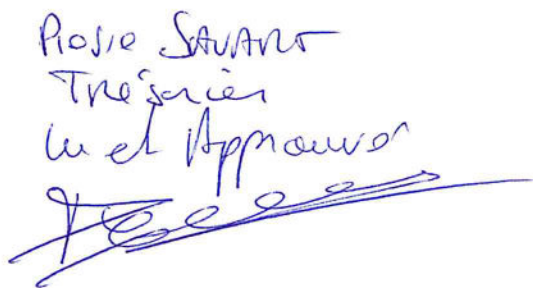 Pierre SAVART
Trésorier
lu et Approuver